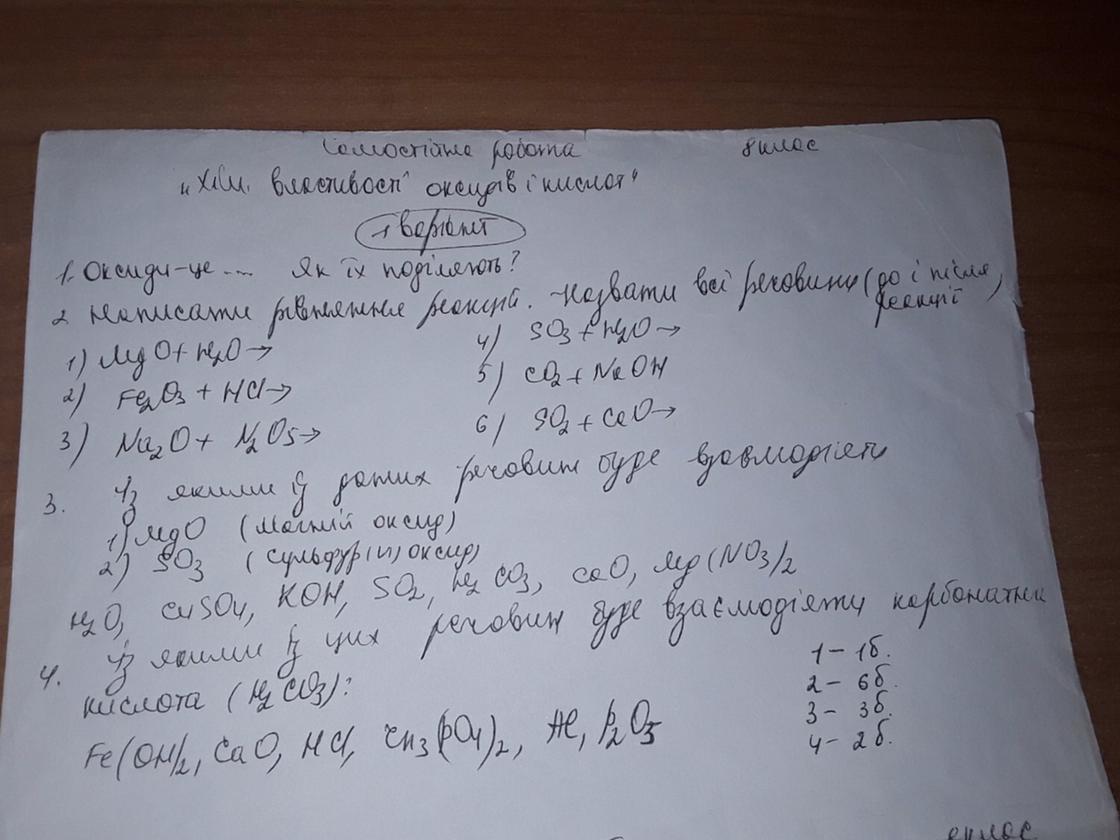 Самостійна робота 8 клас
"Хім. властивості оксидів і кислот"
1 варіант
1. Оксиди-це .... Як їх поділяють?
2. Написати рівняння реакцій. Назвати всі речовини (до і після реакції)
1) MgO + H2O →
4) SO3 + H2O →
2) Fe2O3 + HCl →
5) CO2 + NaOH
3) Na2O + N2O5 →
6) SO2 + CaO →
3. Із якими із даних речовин буде взаємодіяти
1) MgO (магній оксид)
2) SO3 (сульфур(VI) оксид)
H2O, CuSO4, KOH, SO2, H2CO3, CaO, Mg(NO3)2
4. Із якими із цих речовин буде взаємодіяти карбонатна
кислота (H2CO3):
Fe(OH)2, CaO, HCl, Zn3(PO4)2, Al, P2O5
1 - 1б.
2 - 6б.
3 - 3б.
4 - 2б.
клас